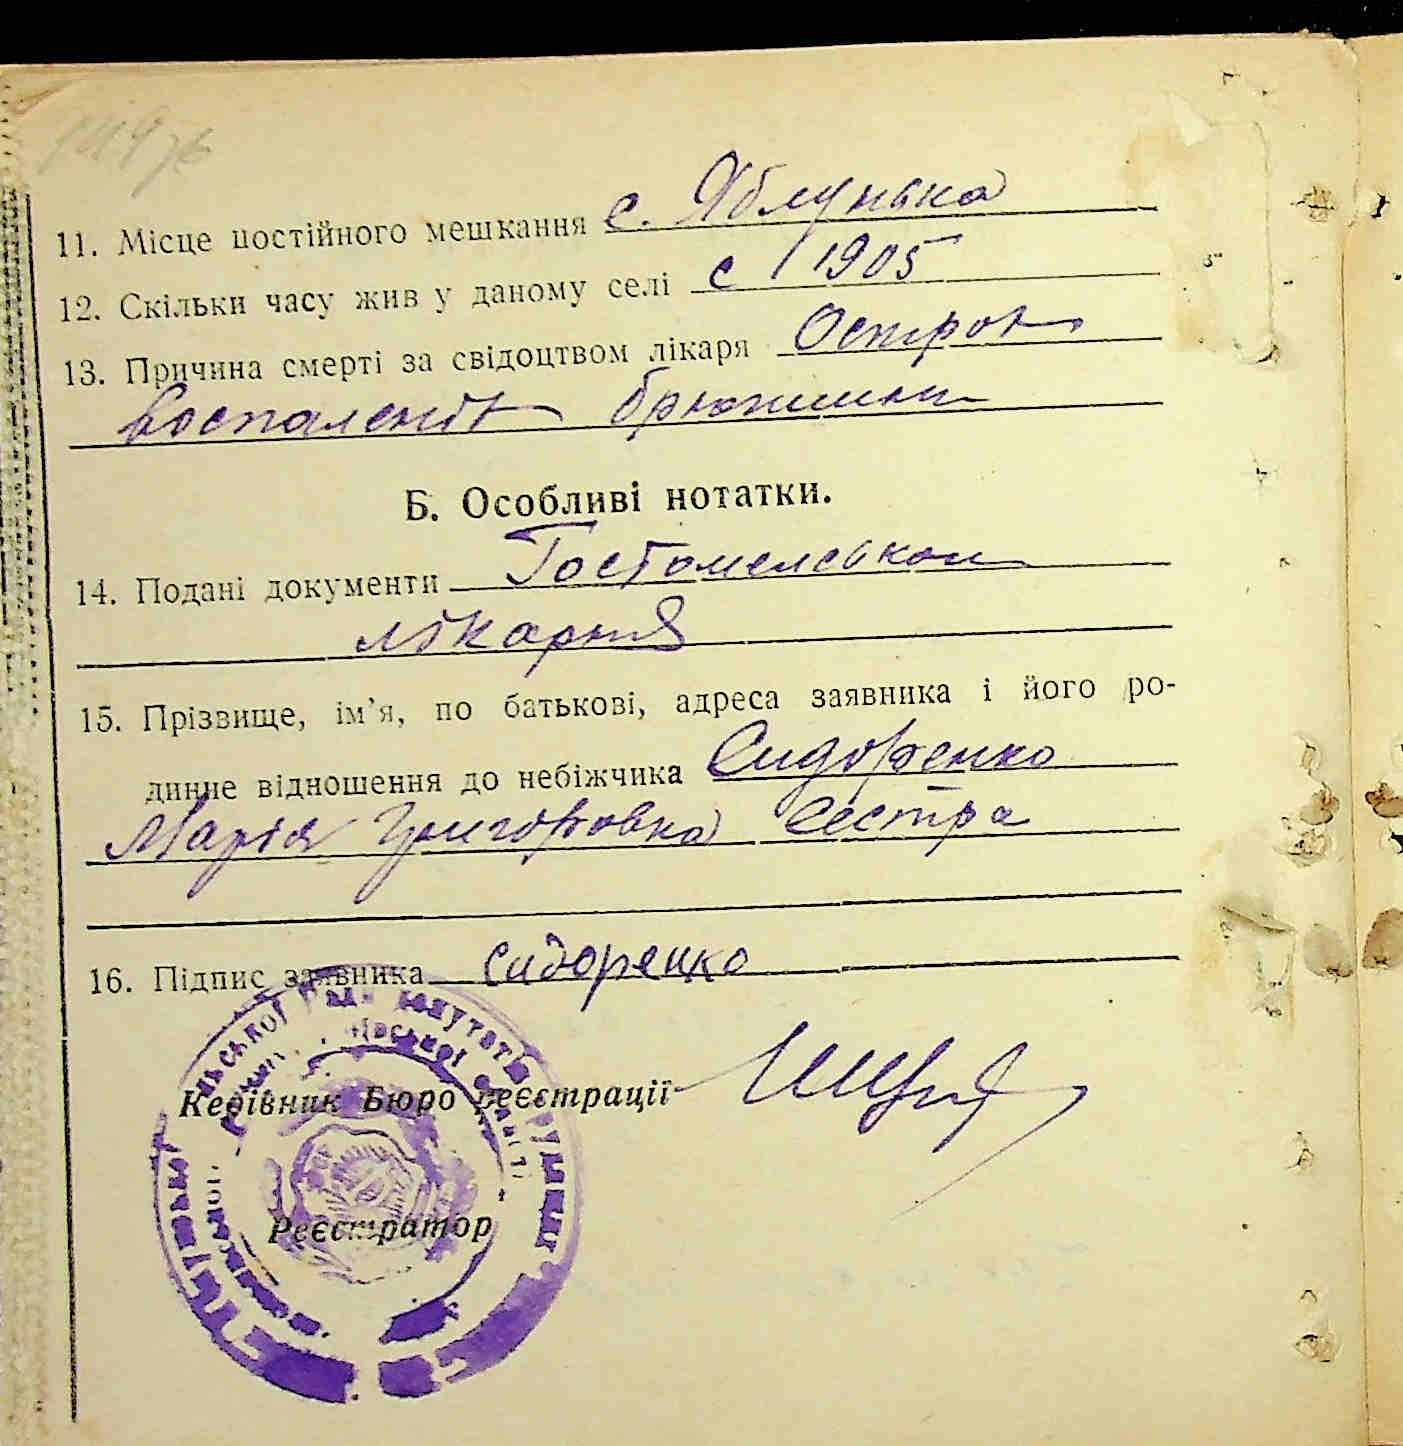 11. Місце постійного мешкання с. Яблунька
12. Скільки часу жив у даному селі с 1905
13. Причина смерті за свідоцтвом лікаря Остроє
воспаленіє брюшини
Б. Особливі нотатки.
14. Подані документи Гостомельской
лікарня
15. Прізвище, ім’я, по батькові, адреса заявника і його ро-
динне відношення до небіжчика Сидоренко
Марія Григоровна сестра
16. Підпис заявника Сидоренко
Керівник Бюро реєстрації
Реєстратор